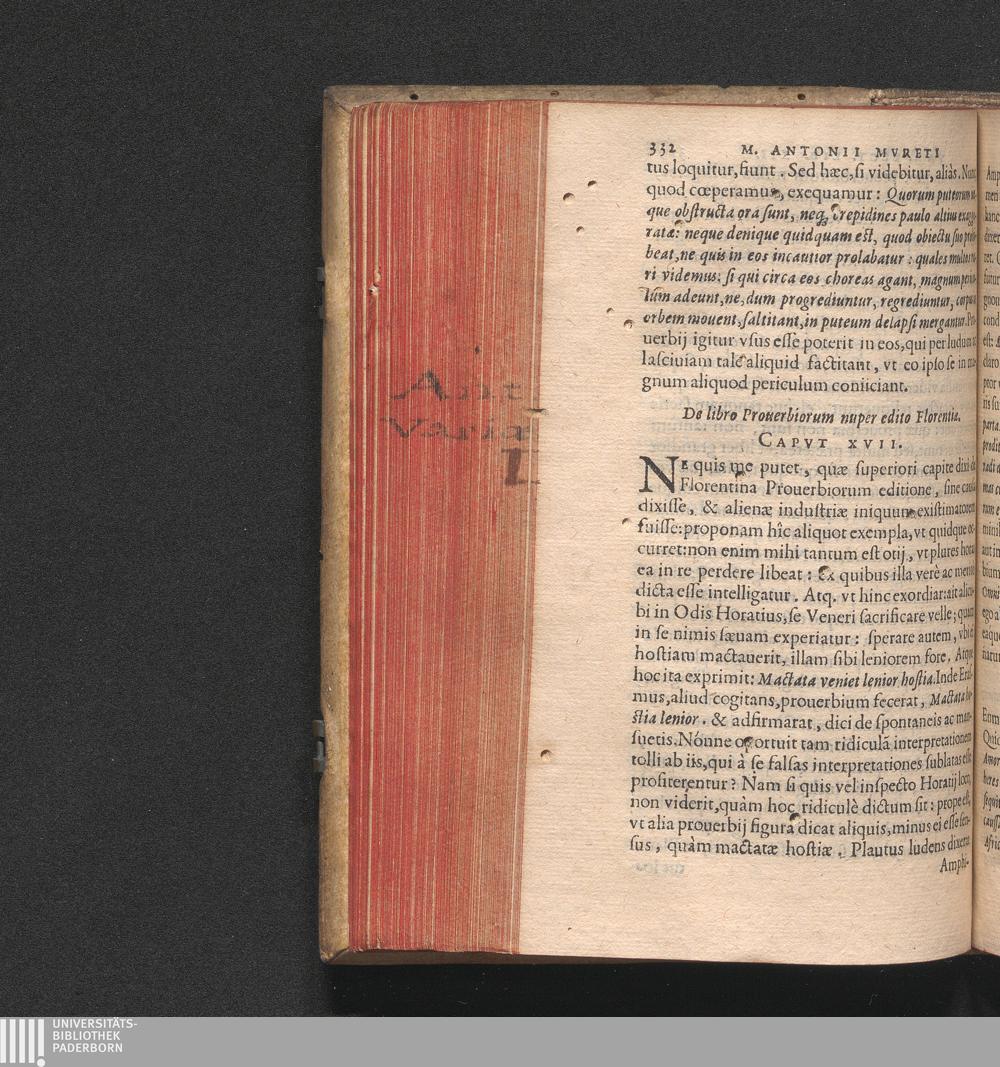 332 M. ANTONII MVRETI
tus loquitur, fiunt. Sed hæc, si videbitur, aliàs. Nunc
quod cœperamus, exequamur: Quorum puteorum
que obstructa ora sunt, neq; crepidines paulo altius
ratæ: neque denique quidquam est, quod obiectu suo
beat, ne quis in eos incautior prolabatur: quales multos
ri videmus: si qui circa eos choreas agant, magnum
lum adeunt, ne, dum progrediuntur, regrediuntur, corpus
orbem mouent, saltitant, in puteum delapsi mergantur.
uerbij igitur vsus esse poterit in eos, qui per ludum
lasciuiam tale aliquid factitant, vt eo ipso se in ma-
gnum aliquod periculum coniiciant.
De libro Prouerbiorum nuper edito Florentiæ.
CAPVT XVII.
NE quis me putet, quæ superiori capite dixi de
Florentina Prouerbiorum editione, sine causa
dixisse, & alienæ industriæ iniquum existimatorem
fuisse: proponam hîc aliquot exempla, vt quidque oc-
curret: non enim mihi tantum est otij, vt plures horas
ea in re perdere libeat: Ex quibus illa verè ac merito
dicta esse intelligatur. Atq. vt hinc exordiar: ait alicu-
bi in Odis Horatius, se Veneri sacrificare velle; quam
in se nimis sæuam experiatur: sperare autem, vbi ei
hostiam mactauerit, illam sibi leniorem fore. Atque
hoc ita exprimit: Mactata veniet lenior hostia. Inde Eras-
mus, aliud cogitans, prouerbium fecerat, Mactata ho-
stia lenior. & adfirmarat, dici de spontaneis ac man-
suetis. Nónne oportuit tam ridiculã interpretationem
tolli ab iis, qui à se falsas interpretationes sublatas esse
profiterentur? Nam si quis vel inspecto Horatij loco,
non viderit, quàm hoc ridiculè dictum sit: prope est,
vt alia prouerbij figura dicat aliquis, minus ei esse sen-
sus, quàm mactatæ hostiæ. Plautus ludens dixerat
Amphi-
Ant
Variæ
L
UNIVERSITÄTS-
BIBLIOTHEK
PADERBORN